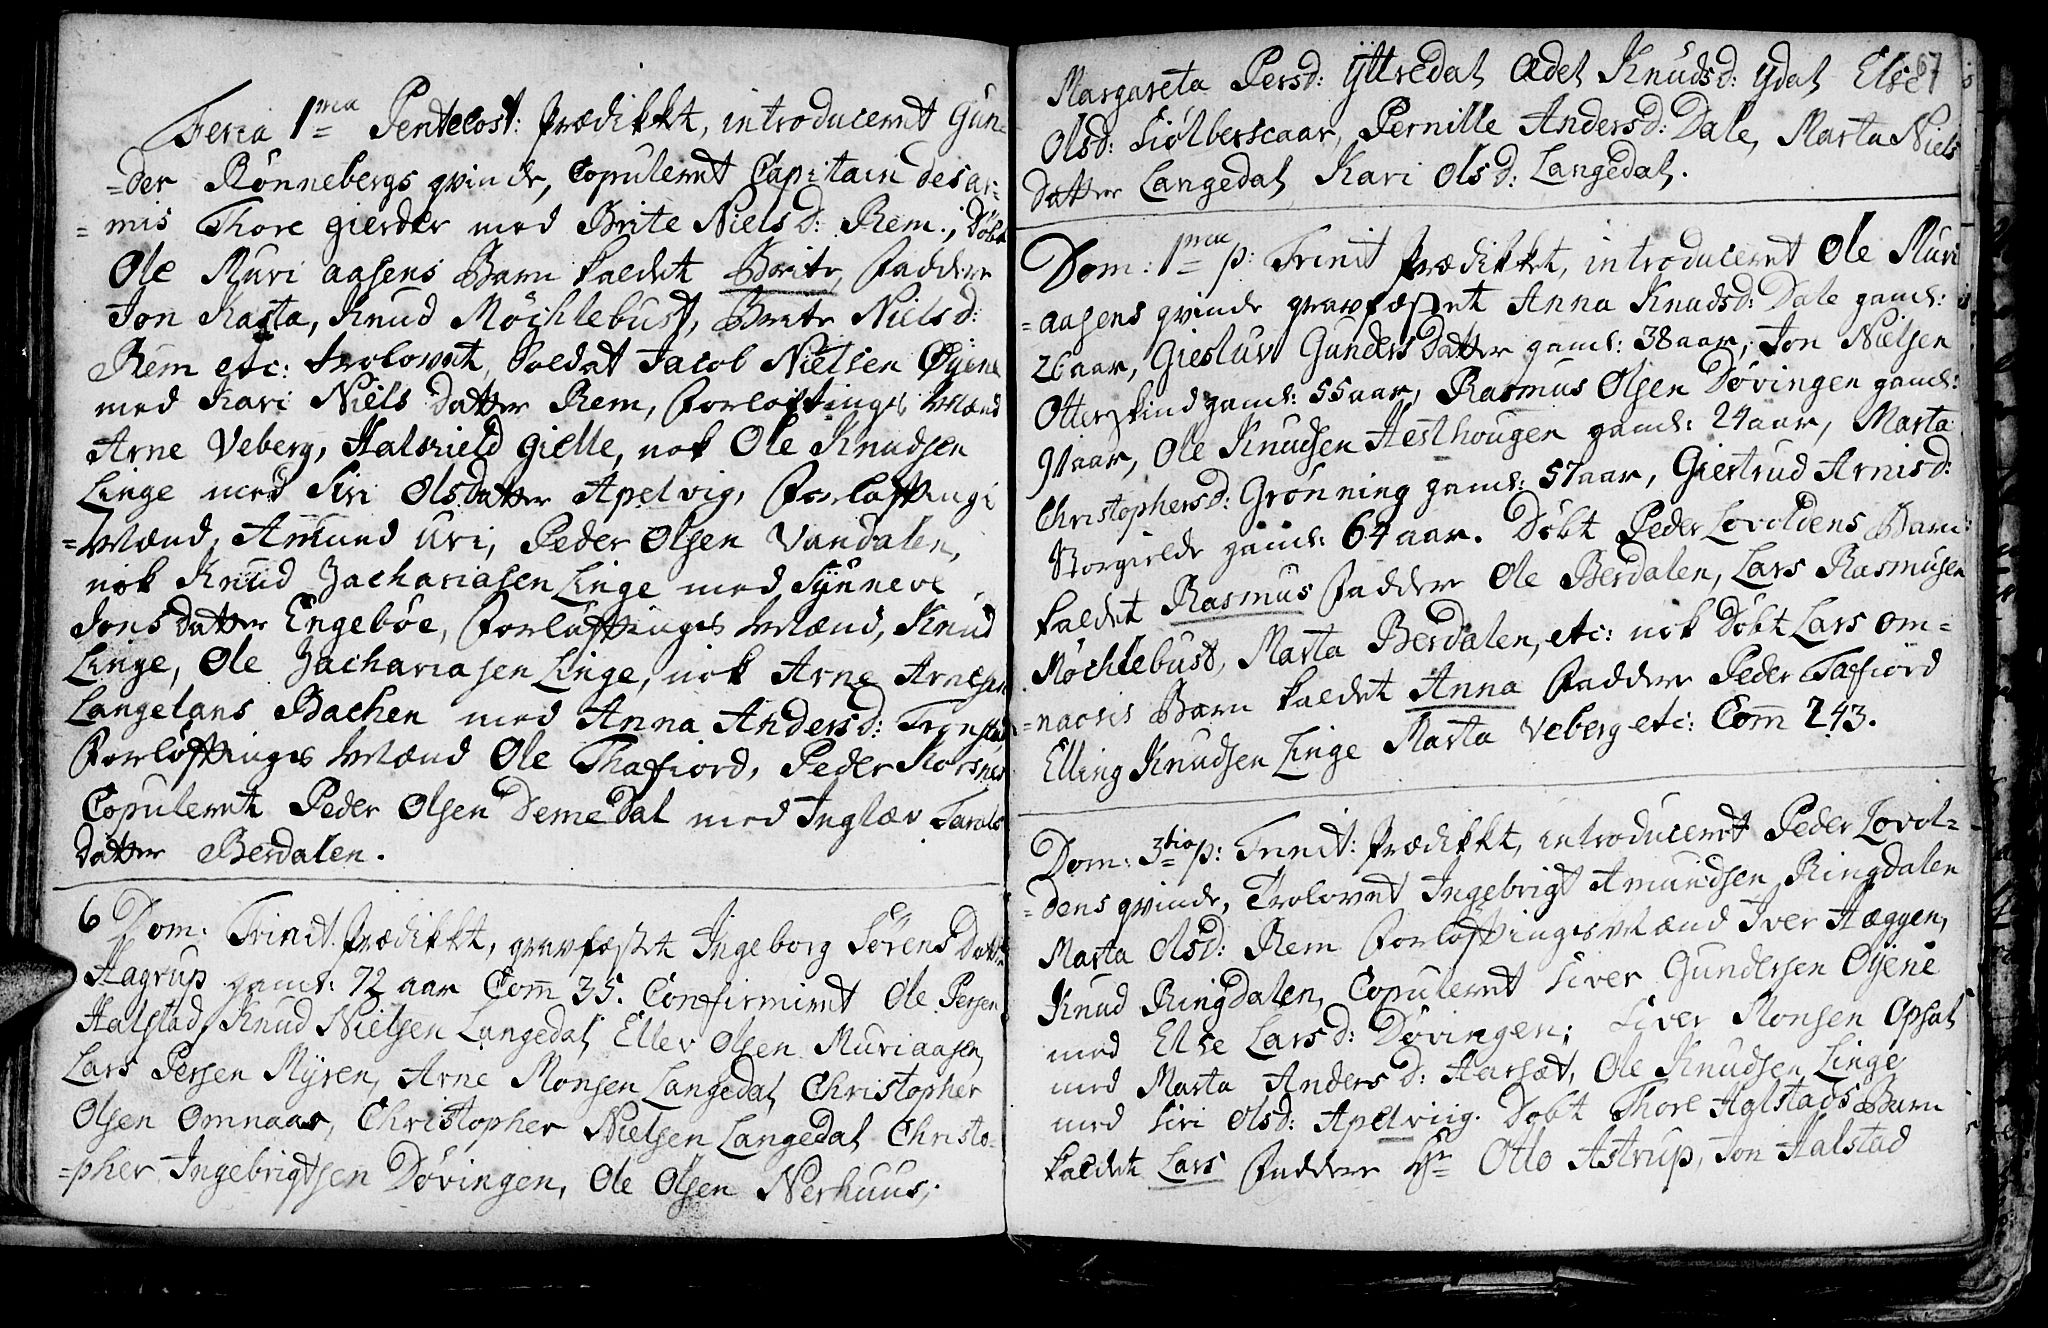 Feria 1ma Pentecost: Prædikket, introduceret Gun-
=der Rönnebergs qvinde, Copuleret Capitain des ar-
=mis Thore gierder med Brite Niels D: Rem., Döbt
Ole Muri aasens Barn kaldet Brite, Faddere
Jon Kasta, Knud Möchlebust, Brite Niels d:
Rem etc: trolovet, Soldat Jacob Nielsen Öyene
med Kari Niels Datter Rem, Forloftinges Mænd
Arne Veberg, Halsield Gielle, nok Ole Knudsen
Linge med Siri Olsdatter Apelvig, Forloftings
=Mænd, Amund Uri, Peder Olsen Vandalen,
nok Knud Zachariasen Linge med Synneve
Jons datter Engeböe, Forloftinges Mænd, Knud
Linge, Ole Zachariasen Linge, nok Arne Arnesen
Langelans Bachen med Anna Anders d: Trönstad
Forlöftinges Mænd Ole Thafiord, Peder Korsnes
Copuleret Peder Olsen DemeDal med Inglæv Tarals
datter Berdalen.
6 Dom. Trinit. Prædikket, gravfæstet Ingeborg Sörens Datter
Hagrup gaml: 72 aar Com̄ 35. Confirmeret Ole Persen
Halstad, Knud Nielsen Langedal, Ellev Olsen Muriaasen,
Lars Persen Myren, Arne Monsen Langedal, Christopher
Olsen Omnaas, Christopher Nielsen Langedal, Christo-
=pher Ingebrigtsen Dövingen, Ole Olsen Nerhuus,
67
Margareta Persd: Yttredal, Ædel Knudsd: Ydal, Else
Olsd: Siölberscaar, Pernille Andersd: Dale, Marta Niels
Datter Langedal, Kari Olsd: Langedal.
Dom: 1ma p: Trinit Prædikket, introduceret Ole Muri
=aasens qvinde gravfæstet Anna Knudsd: Dale gaml:
26 aar, Giesluv Gunders Datter gaml: 38 aar, Jon Nielsen
Otterskind gaml: 55 aar, Rasmus Olsen Dövingen gaml:
91 aar, Ole Knudsen Hesthougen gaml: 24 aar, Marta
Christophersd: Grönning gaml: 57 aar, Giertrud Arnisd:
Norgielde gaml: 64 aar. Döbt Peder Lovoldens Barn
kaldet Rasmus Faddere Ole Berdalen, Lars Rasmusen
Möchlebust, Marta Berdalen, etc: nok Döbt Lars Om-
=naasis Barn kaldet Anna Faddere Peder Tafiord
Elling Knudsen Linge Marta Veberg etc: Com̄ 243.
Dom: 3tia p: Trinit: Prædikket, introduceret Peder Lovol-
=dens qvinde, Trolovet Ingebrigt Amundsen Ringdalen
Marta Olsd: Rem Forlöftinges Mænd Iver Hæggen,
Knud Ringdalen, Copuleret Siver Gundersen Öyene
med Else Lars d: Dövingen; Siver Monsen Opsal
med Marta Anders d: Aarsæt, Ole Knudsen Linge
med Siri Olsd: Apelviig. Döbt Thore Halstads Barn
kaldet Lars Faddere Hr Otto Astrup, Jon Halstad